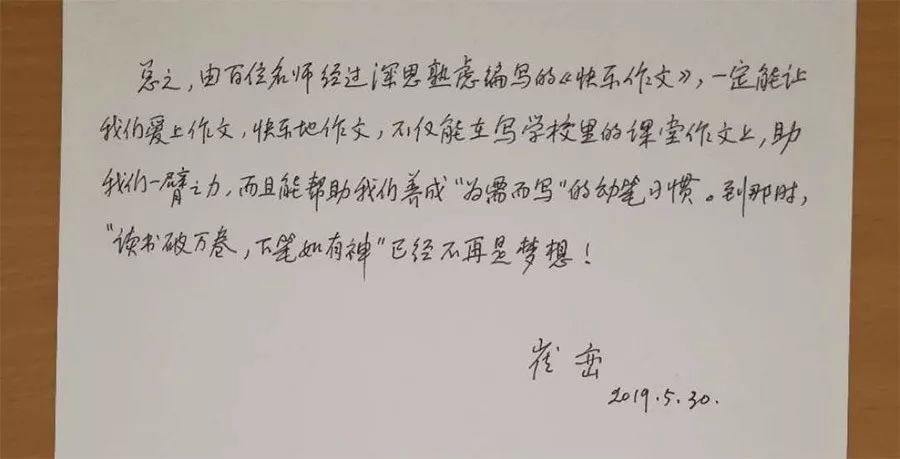 总之，由百位名师经过深思熟虑编写的《快乐作文》，一定能让
我们爱上作文，快乐地作文，不仅能在写学校里的课堂作文上，助
我们一臂之力，而且能帮助我们养成“为需而写”的动笔习惯。到那时，
“读书破万卷，下笔如有神”已经不再是梦想！
崔峦
2019.5.30.